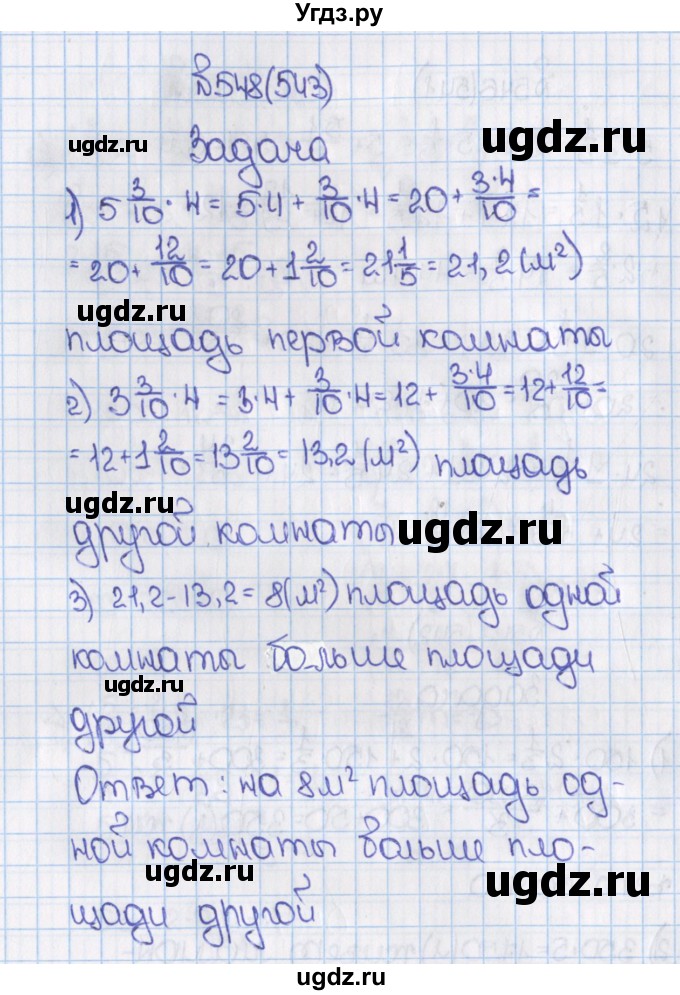 Угдз.ру
№548(543)
ugdz.ru
ugdz.ru
Задача
1) 5 3/10 · 4 = 5·4 + 3/10 · 4 = 20 + 3·4/10 =
= 20 + 12/10 = 20 + 1 2/10 = 21 1/5 = 21,2 (м²)
ugdz.ru
площадь первой комнаты
2) 3 3/10 · 4 = 3·4 + 3/10 · 4 = 12 + 3·4/10 = 12 + 12/10 =
= 12 + 1 2/10 = 13 2/10 = 13,2 (м²) площадь
ugdz.ru
другой комнаты
ugdz.ru
3) 21,2 - 13,2 = 8 (м²) площадь одной
комнаты больше площади
ugdz.ru
другой
Ответ: на 8 м² площадь од-
ной комнаты больше пло-
ugdz.ru
ugdz.ru
щади другой
ugdz.ru